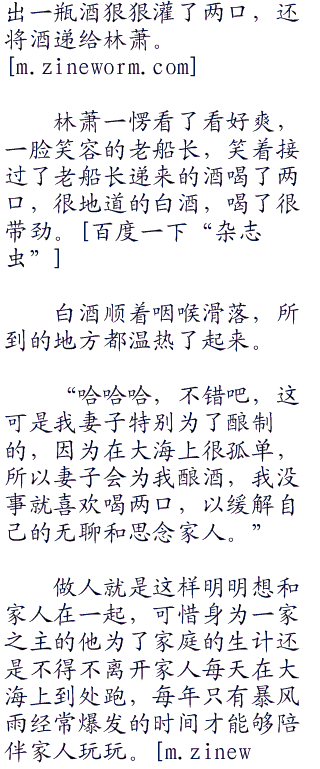 出一瓶酒狠狠灌了两口，还
将酒递给林萧。
[m.zineworm.com]
林萧一愣看了看好爽，
一脸笑容的老船长，笑着接
过了老船长递来的酒喝了两
口，很地道的白酒，喝了很
带劲。[百度一下“杂志
虫”]
白酒顺着咽喉滑落，所
到的地方都温热了起来。
“哈哈哈，不错吧，这
可是我妻子特别为了酿制
的，因为在大海上很孤单，
所以妻子会为我酿酒，我没
事就喜欢喝两口，以缓解自
己的无聊和思念家人。”
做人就是这样明明想和
家人在一起，可惜身为一家
之主的他为了家庭的生计还
是不得不离开家人每天在大
海上到处跑，每年只有暴风
雨经常爆发的时间才能够陪
伴家人玩玩。[m.zinew